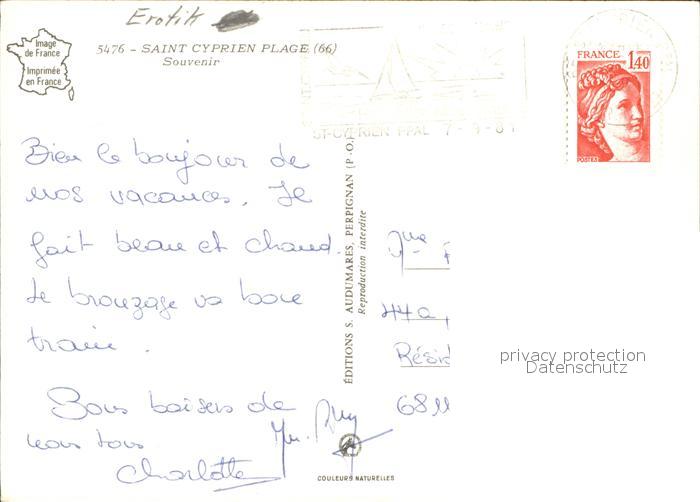 Erotik
Image
de France
Imprimée
en France
5476 - SAINT CYPRIEN PLAGE (66)
Souvenir
ST-CYPRIEN PPAL 7-9-81
FRANCE 1,40
POSTES
Bien le bonjour de
nos vacances. Il
fait beau et chaud.
Le bronzage va bon
train.
Bons baisers de
nous tous
Charlotte
ÉDITIONS S. AUDUMARES, PERPIGNAN (P.-O.)
Reproduction interdite
COULEURS NATURELLES
Mme
44a,
Résid
6811
privacy protection
Datenschutz